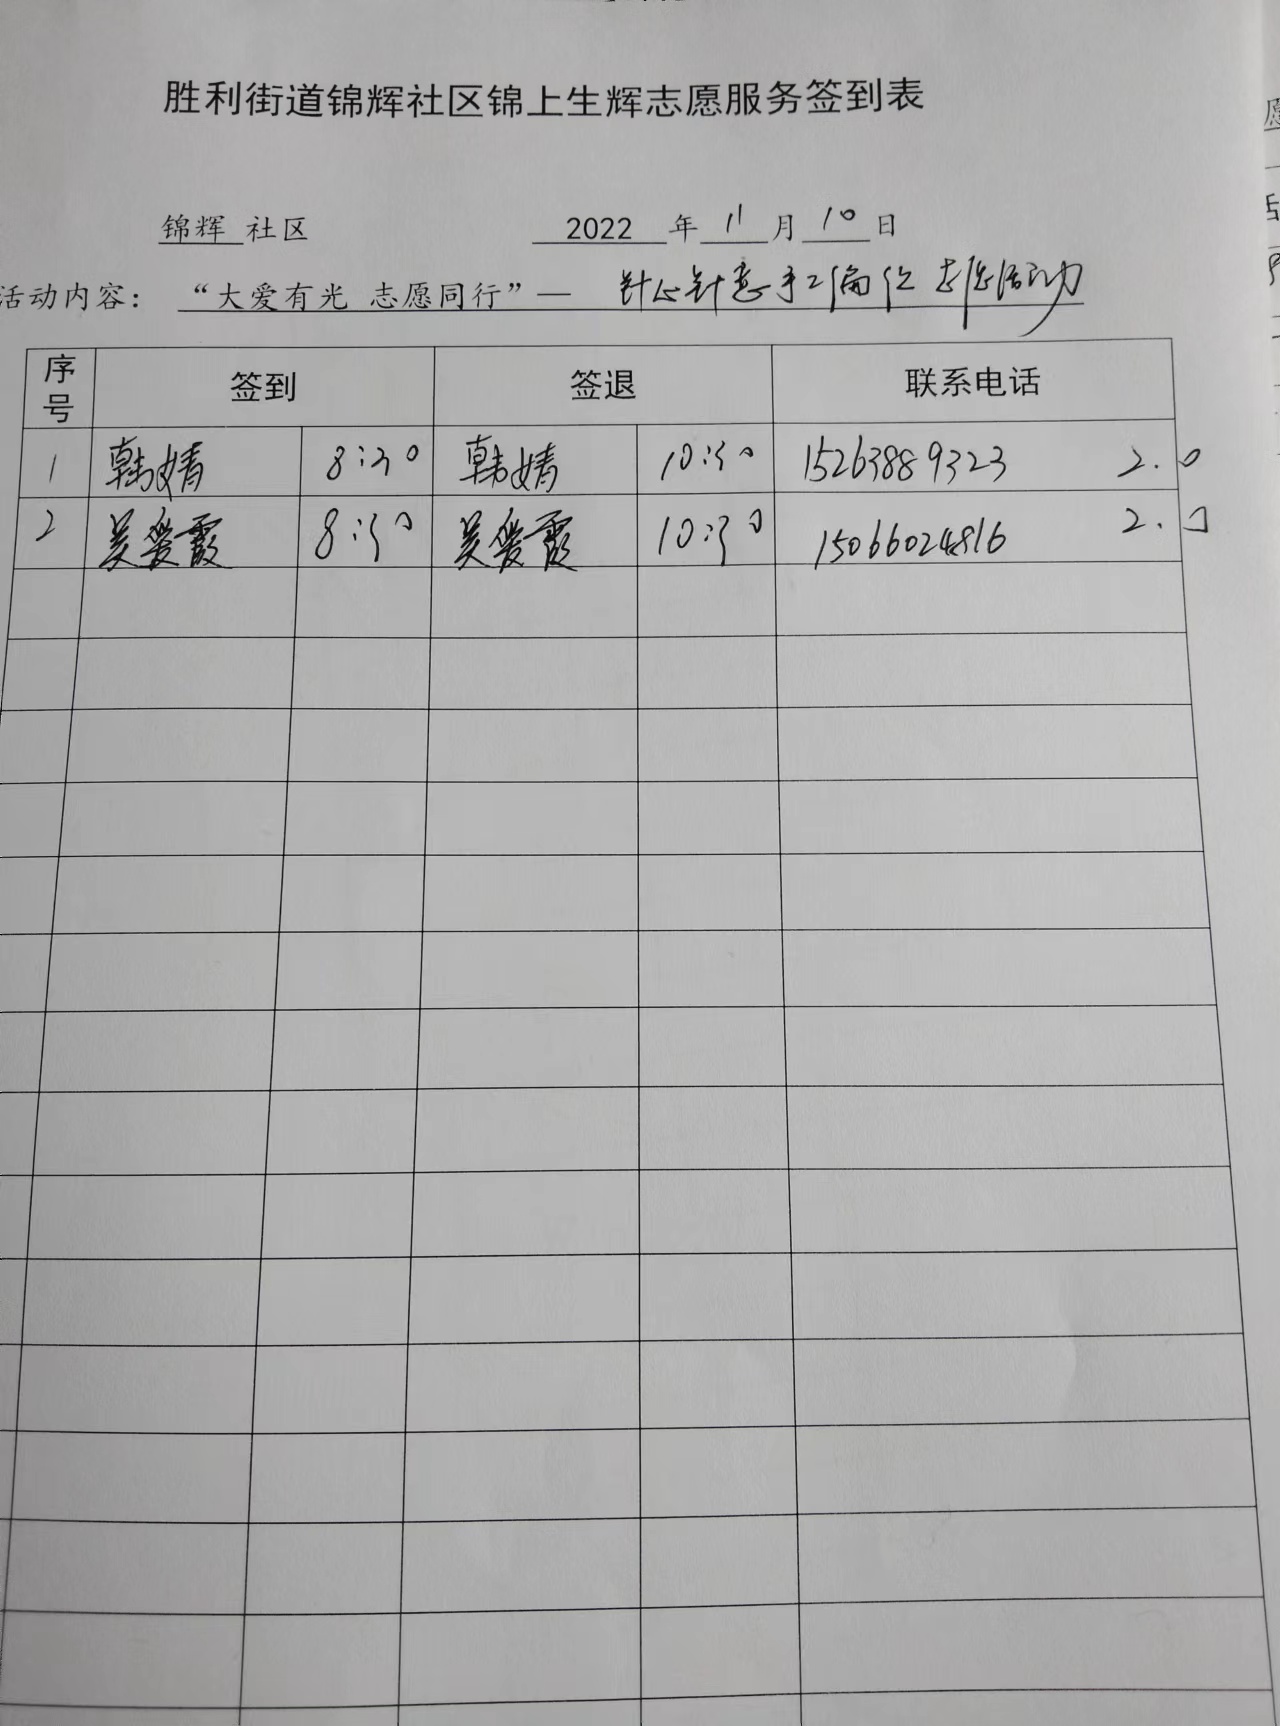 胜利街道锦辉社区锦上生辉志愿服务签到表
锦辉 社区 2022 年 11 月 10 日
活动内容：“大爱有光 志愿同行”— 针心针意手工编织志愿活动
序号 签到 签退 联系电话
1 韩婧 8:30 韩婧 10:30 15263889323 2.0
2 吴爱霞 8:30 吴爱霞 10:30 15066024816 2.0